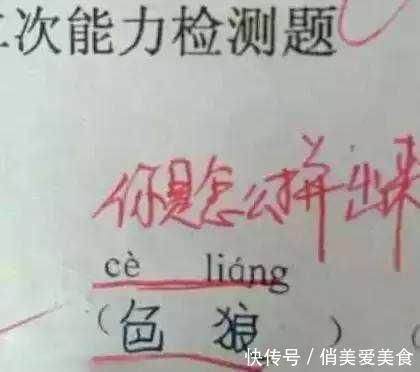 二次能力检测题
你是怎么拼出来
cè liáng
（色 狼 ）（
快传号 / 俏美爱美食